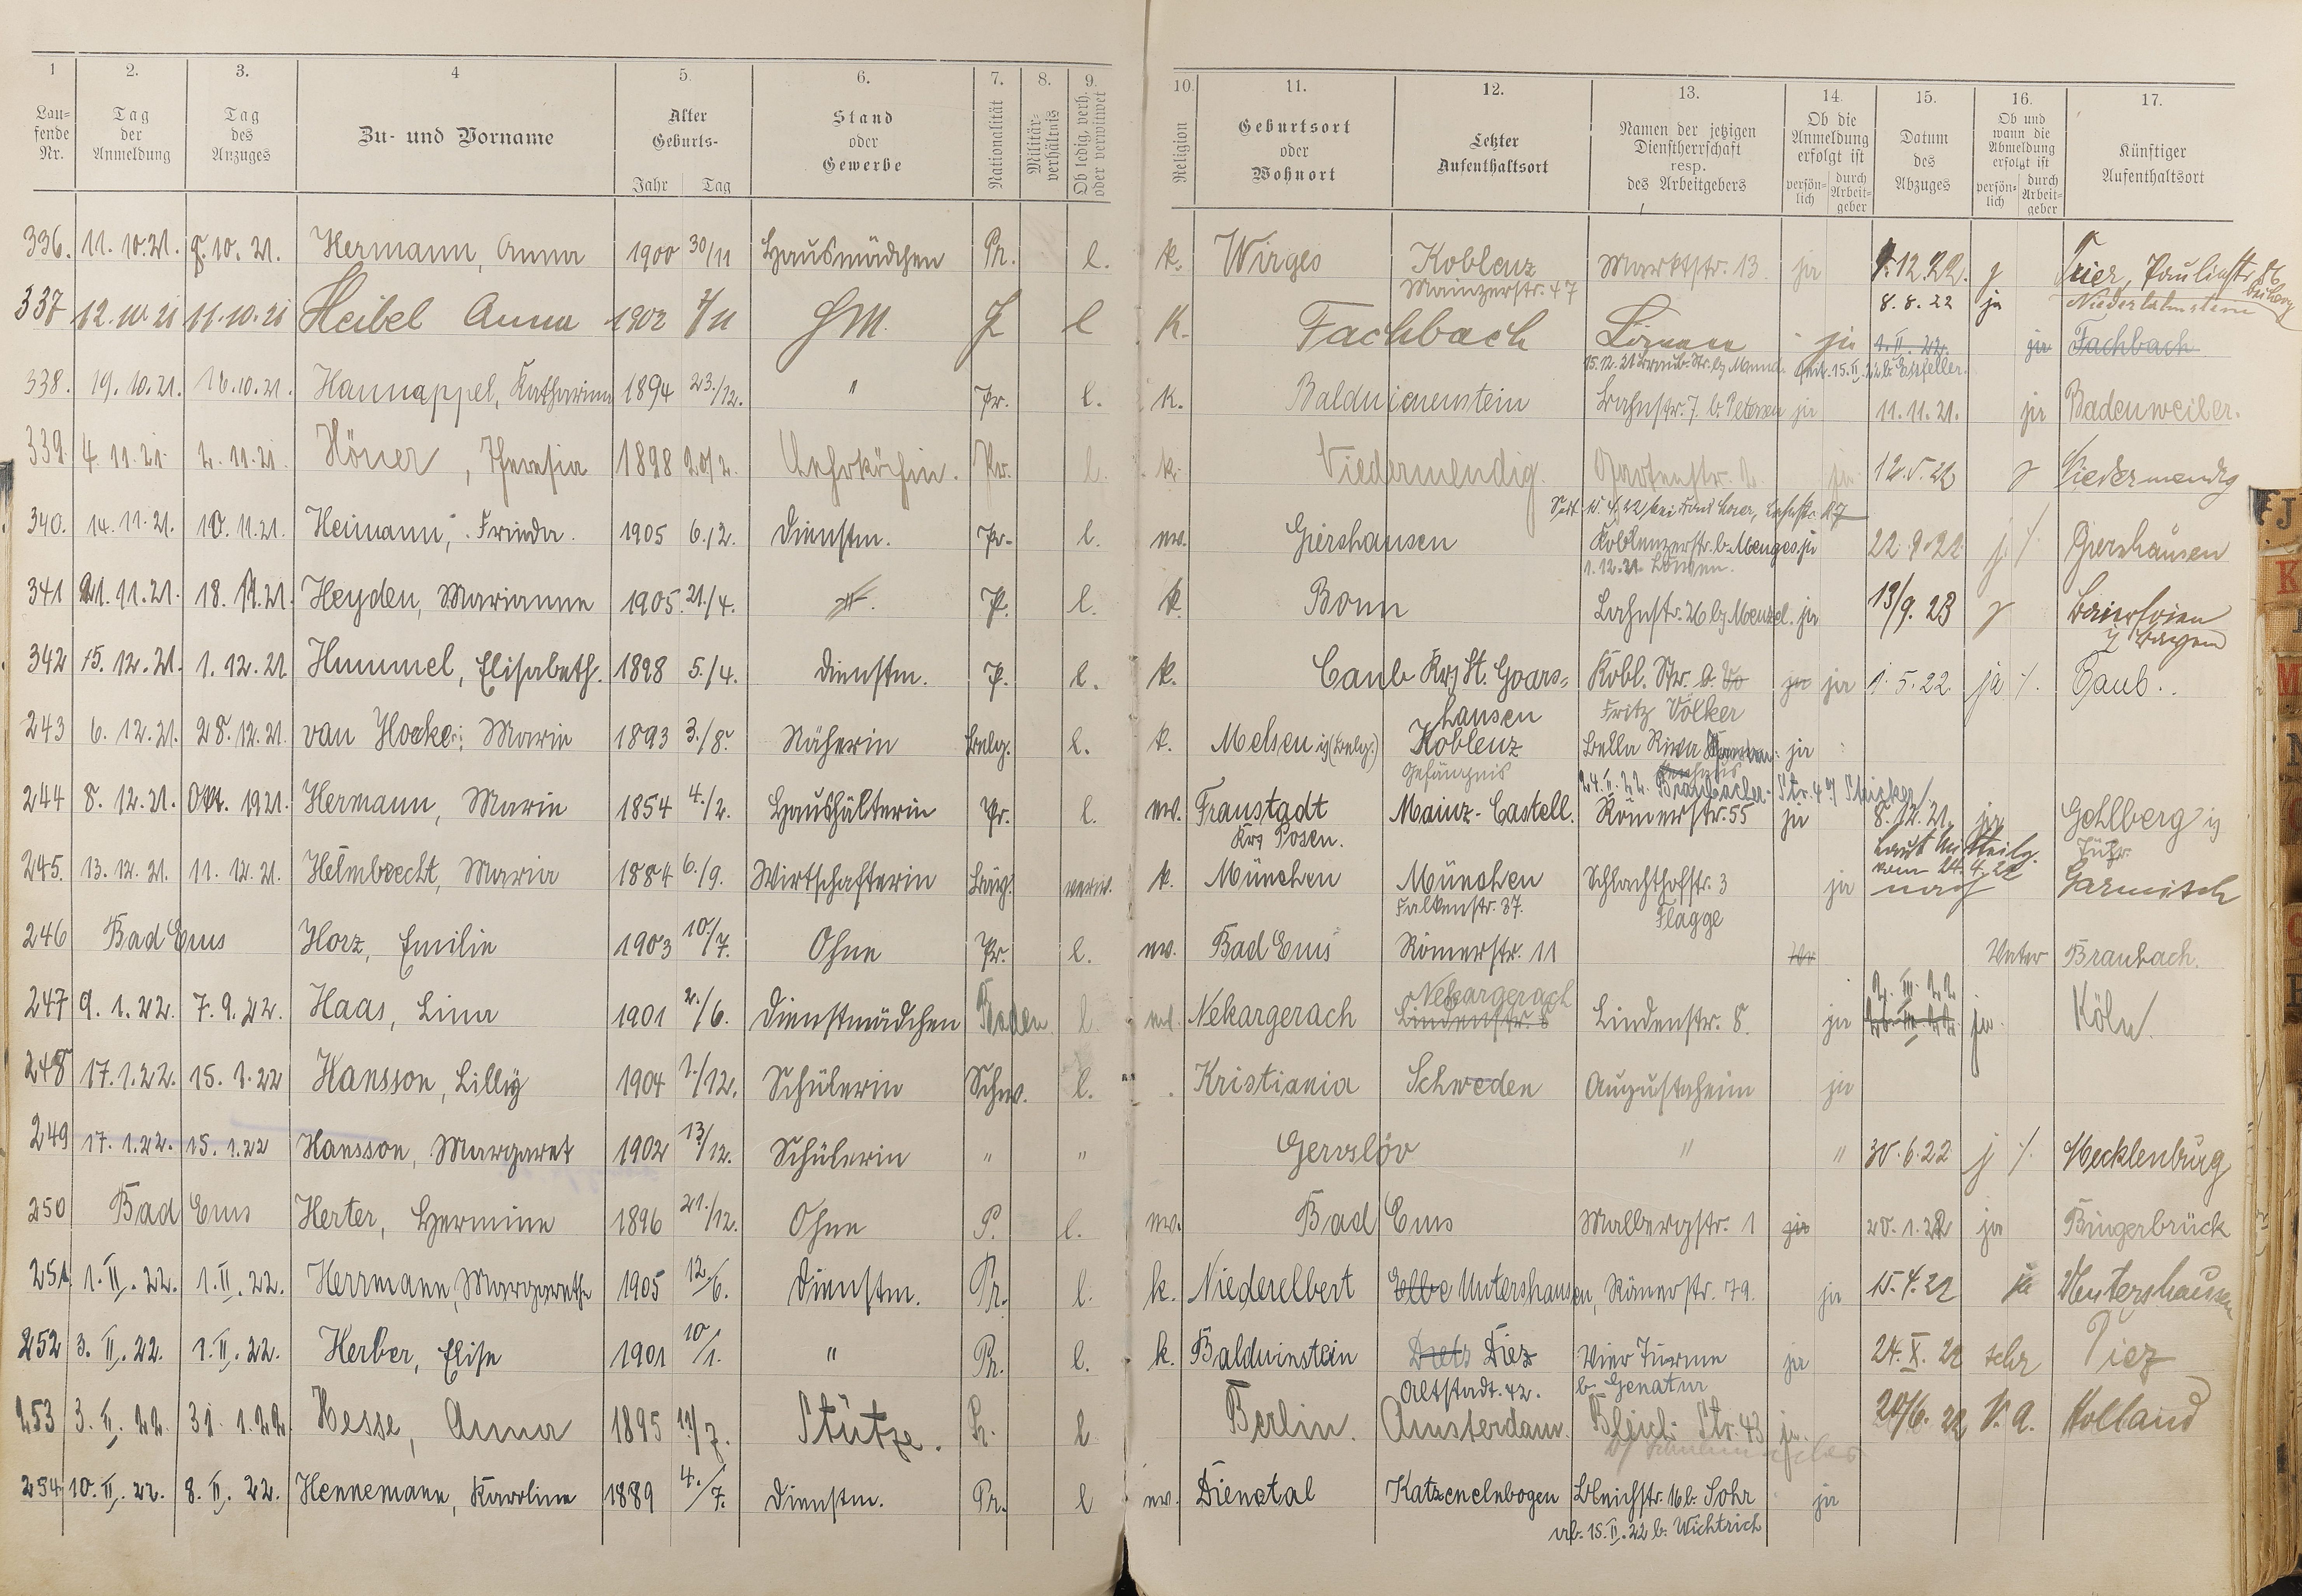 1 2. 3. 4 5. 6. 7. 8. 9. 10. 11. 12. 13. 14. 15. 16. 17.
Lau-fende Nr. Tag der Anmeldung Tag des Anzuges Zu- und Vorname Alter Geburts- Jahr Tag Stand oder Gewerbe Nationalität Militär-verhältnis Ob ledig, verh. oder verwitwet Religion Geburtsort oder Wohnort Letzter Aufenthaltsort Namen der jetzigen Dienstherrschaft resp. des Arbeitgebers Ob die Anmeldung erfolgt ist persön-lich durch Arbeit-geber Datum des Abzuges Ob und wann die Abmeldung erfolgt ist persön-lich durch Arbeit-geber Künftiger Aufenthaltsort
336. 11. 10. 21. 10. 21. Hermann, Anna 1900 30/11 Hausmädchen Pr. l. k. Wirges Koblenz Marktstr. 13. ja 12. 22. j Trier, Paulinstr. 86
Mainzerstr. 47 8. 8. 22 ja Niederlahnstein
337 12. 10. 21 11. 10. 21 Heibel Anna 1902 /11 HM. P l K. Fachbach Löwen ja 1. II. 22. ja Fachbach
338. 19. 10. 21. 16. 10. 21. Hannappel, Katharina 1894 23./12. " Pr. l. k. Balduinenstein Lahnstr. 7. b. Petersen ja 11. 11. 21. ja Badenweiler.
339. 4. 11. 21. 2. 11. 21. Höner, Theresia 1898 20/2. Lehrköchin. Pr. l. k. Niedermendig. Gartenstr. 2. ja 12. 5. 22 j Niedermendig
340. 14. 11. 21. 10. 11. 21. Heimann, Frieda. 1905 6./2. Dienstm. Pr. l. ev. Giershausen Koblenzerstr. b. Menges ja 22. 9. 22 j /. Giershausen
1. 12. 21. Löwen.
341 21. 11. 21. 18. 11. 21. Heyden, Marianne 1905. 21./4. P. l. k. Bonn Lahnstr. 26 bei Menzel. ja 13/9. 23 j
342 15. 12. 21. 1. 12. 21. Hummel, Elisabeth. 1898 5./4. Dienstm. P. l. k. Caub Krs St. Goars= Kobl. Str. ja ja 1. 5. 22 ja /. Caub.
hausen Fritz Völker
243 6. 12. 21. 28. 12. 21. van Hoeke; Marie 1893 3./8. Näherin Belg. l. k. Melsen i/(Belg.) Koblenz Bella Riva ja
Gefängnis 24. II. 22. Braubacher- Str. 47
244 8. 12. 21. Okt. 1921. Hermann, Marie 1854 4./2. Haushälterin Pr. l. ev. Fraustadt Mainz-Castell. Römerstr. 55 ja 8. 12. 21. ja Gohlberg
Krs Posen.
245. 13. 12. 21. 11. 12. 21. Helmbrecht, Maria 1884 6./9. Wirtschafterin Bay. verw. k. München München Schlachthofstr. 3 ja nach Garmisch
Falkenstr. 37. Flagge
246 Bad Ems Horz, Emilie 1903 10/7. Ohne Pr. l. ev. Bad Ems Römerstr. 11 Vater Braubach.
247 9. 1. 22. 7. 9. 22. Haas, Lina 1901 2./6. Dienstmädchen Baden l. ev. Nekargerach Nekargerach Lindenstr. 8 Lindenstr. 8. ja 2. III. 22 ja. Köln.
248 17. 1. 22. 15. 1. 22 Hansson, Lilly 1904 /12. Schülerin Schw. l. Kristiania Schweden Augustaheim ja
249 17. 1. 22. 15. 1. 22 Hansson, Margaret 1902 13/12. Schülerin " " Gervslöv " " 30. 6. 22 j /. Mecklenburg
250 Bad Ems Herter, Hermine 1896 21./12. Ohne P. l. ev. Bad Ems Mallbergstr. 1 ja 20. 1. 22 ja Bingerbrück
251 1. II. 22. 1. II. 22. Herrmann, Margarethe 1905 12./6. Dienstm. Pr. l. k. Niederelbert Elbe Untershausen, Römerstr. 79. ja 15. 4. 22 ja Untershausen
252 3. II. 22. 1. II. 22. Herber, Elise 1901 10/1. " Pr. l. k. Balduinstein Diez Vier Türme ja 24. X. 22 Diez
Altstadt. 42. b. Genatur
253 3. II. 22. 31. 1. 22 Hesse, Anna 1895 /7. Stütze. Pr. l Berlin. Amsterdam. Bleich Str. 43 ja 20/6. 22 V. A. Holland
254 10. II. 22. 8. II. 22. Hennemann, Karoline 1889 4./7. Dienstm. Pr. l ev. Dienetal Katzenelnbogen Bleichstr. 16 b. Sohr ja
vrb. 15. II. 22 b. Wichtrich
J
K
M
N